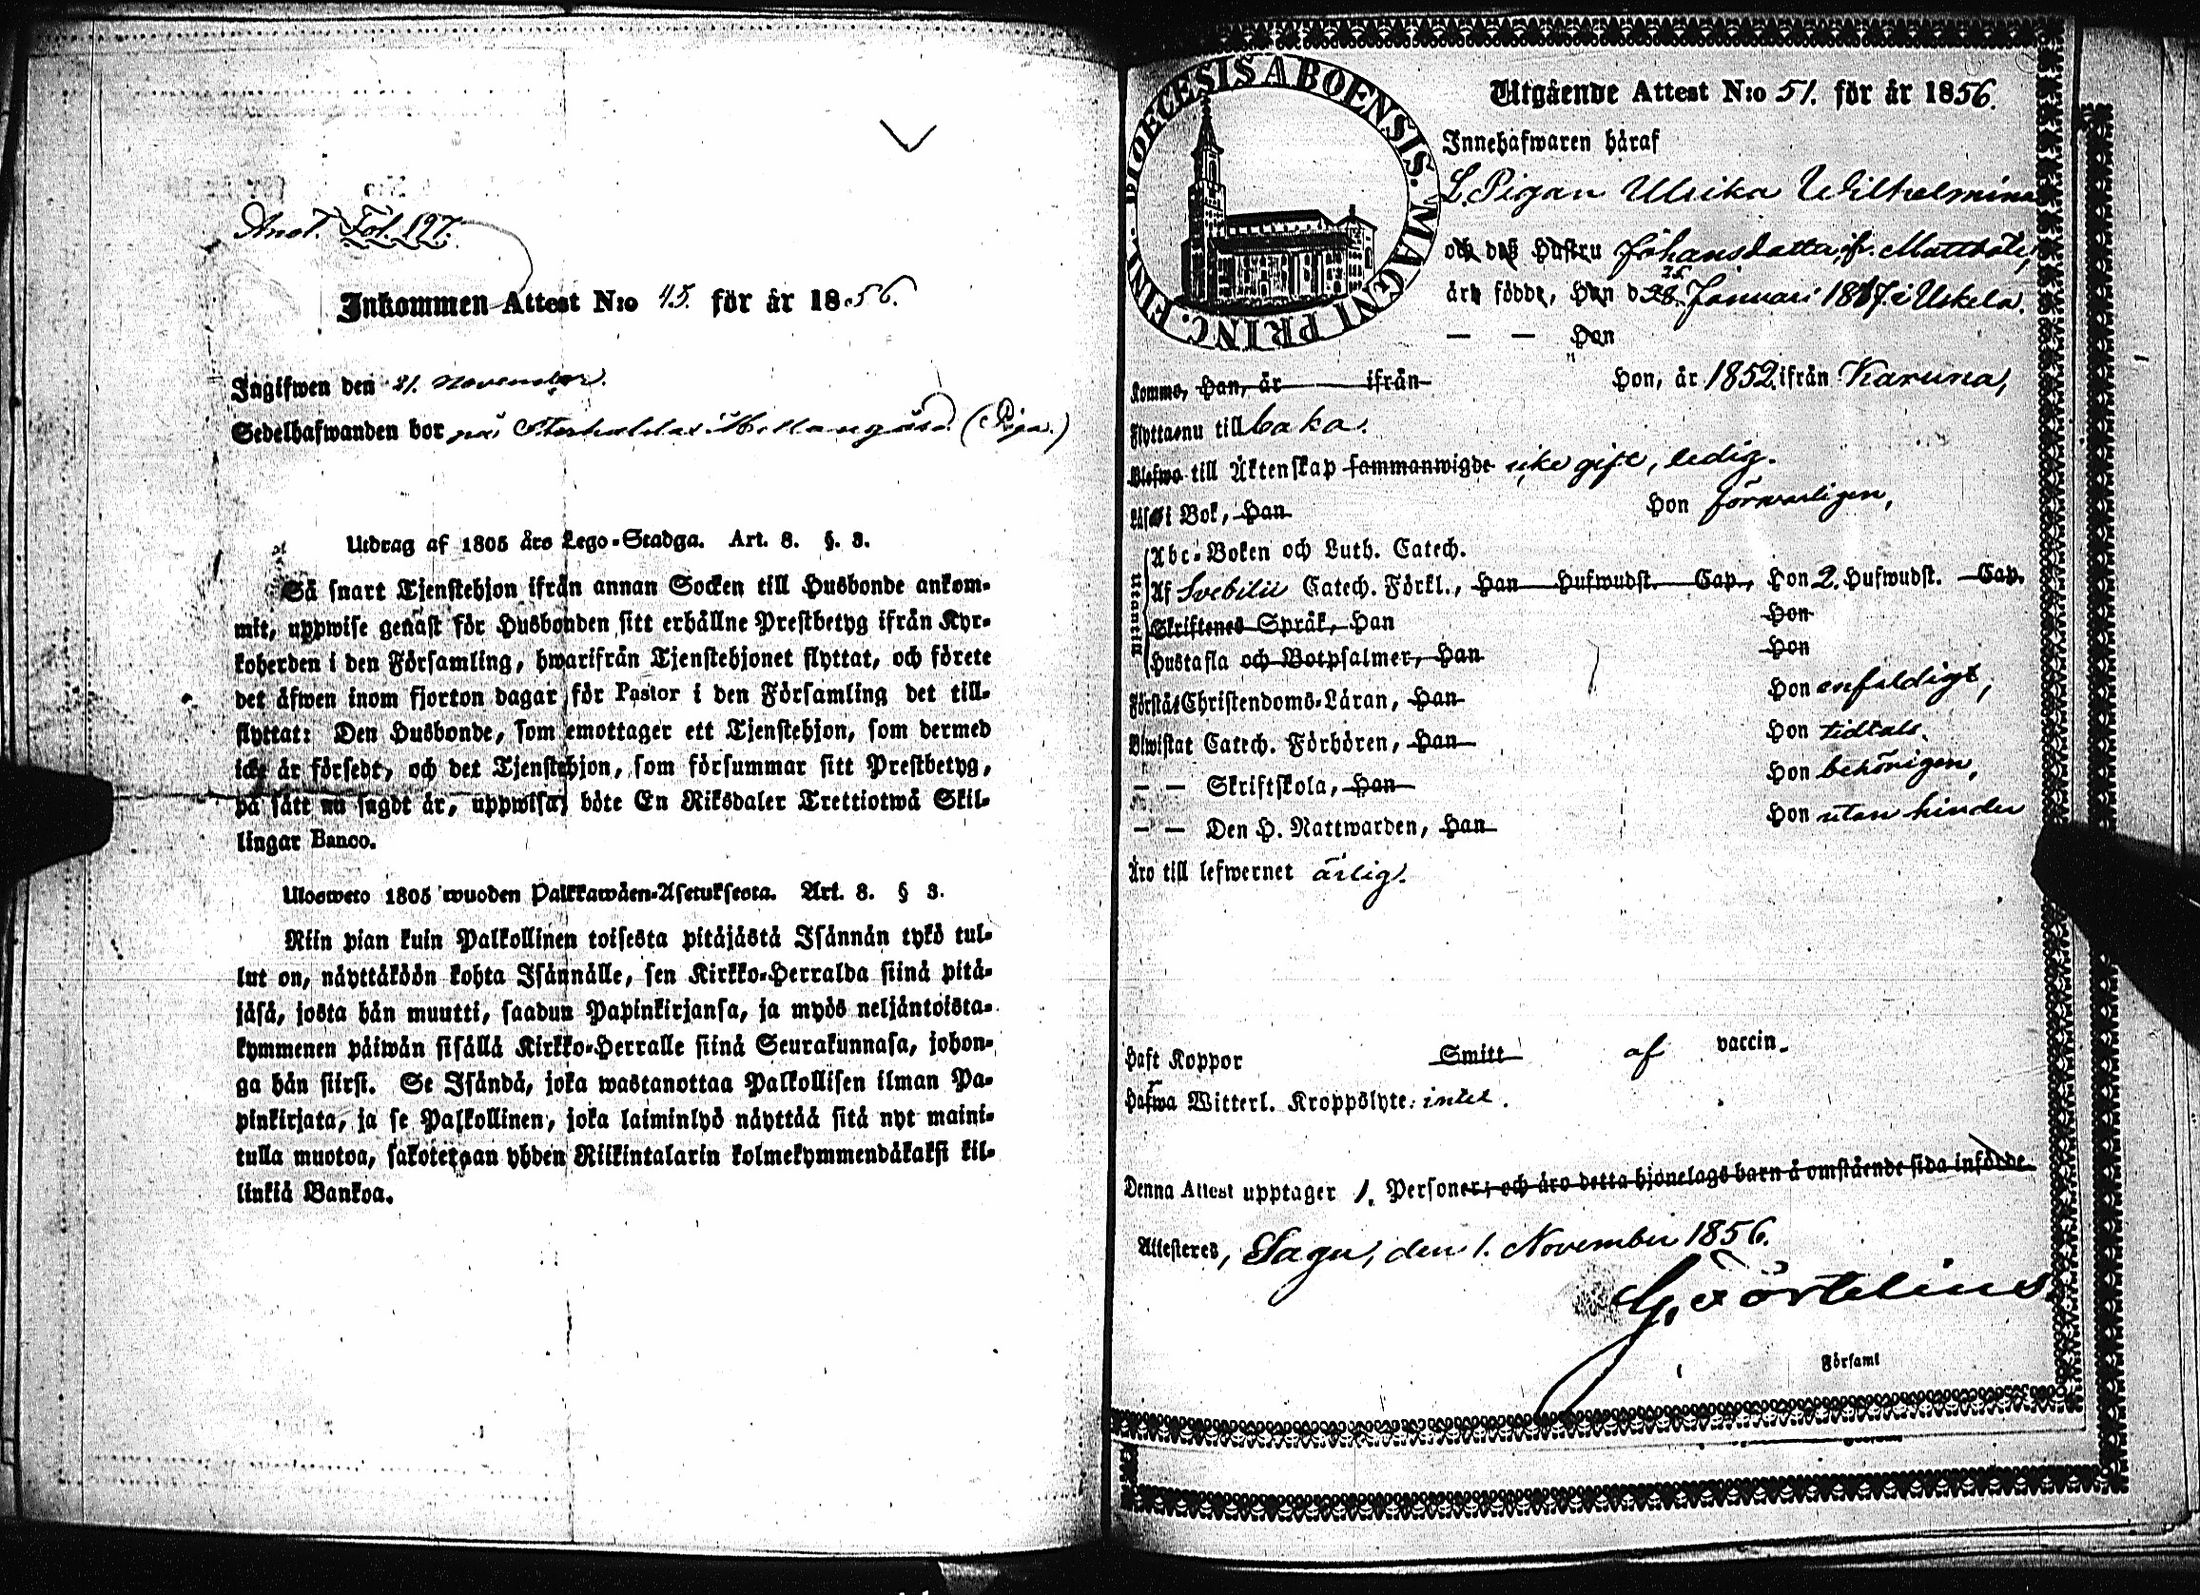 Anot. Fol. 197.
Inkommen Attest N:o 45. för år 1856.
Ingifwen den 21. November.
Sedelhafwanden bor på (Piga.)
Utdrag af 1805 års Lego-Stadga. Art. 8. §. 3.
Så snart Tjenstehjon ifrån annan Socken till Husbonde ankom-
mit, uppwise genast för Husbonden sitt erhållne Prestbetyg ifrån Kyr-
koherden i den Församling, hwarifrån Tjenstehjonet flyttat, och förete
det äfwen inom fjorton dagar för Pastor i den Församling det till-
flyttat: Den Husbonde, som emottager ett Tjenstehjon, som dermed
icke är försedt, och det Tjenstehjon, som försummar sitt Prestbetyg,
på sätt nu sagdt är, uppwisa, böte En Riksdaler Trettiotwå Skil-
lingar Banco.
Ulosweto 1805 wuoden Palkkawäen-Asetuksesta. Art. 8. § 3.
Niin pian kuin Palkollinen toisesta pitäjästä Isännän tykö tul-
lut on, näyttäköön kohta Isännälle, sen Kirkko-Herralda siinä pitä-
jäsä, josta hän muutti, saadun Papinkirjansa, ja myös neljäntoista-
kymmenen päiwän sisällä Kirkko-Herralle siinä Seurakunnasa, johon-
ga hän siirsi. Se Isändä, joka wastanottaa Palkollisen ilman Pa-
pinkirjata, ja se Palkollinen, joka laiminlyö näyttää sitä nyt maini-
tulla muotoa, sakotetaan yhden Riikintalarin kolmekymmendäkaksi kil-
linkiä Bankoa.
DIOECESIS ABOENSIS. MAGNI PRINC. FINL.
Utgående Attest N:o 51. för år 1856.
Innehafwaren häraf
L. Pigan Ulrika Wilhelmina
och deß Hustru Johansdotter, fr.
äro födde, Han d. 28. 25. Januari 1817 i Uskela.
— — Hon
Komme, Han, år ifrån Hon, år 1852. ifrån Karuna,
Flytta nu till baka.
Blefwo till Äktenskap sammanwigde icke gift, ledig.
Läsa i Bok, Han Hon förswarligen,
Utantill
Abc-Boken och Luth. Catech.
Af Svebilii Catech. Förkl., Han Hufwudst. Cap., Hon 2. Hufwudst. Cap.
Skriftenes Språk, Han Hon
Hustafla och Botpsalmer, Han Hon
Förstå Christendoms-Läran, Han Hon enfaldigt,
Biwistat Catech. Förhören, Han Hon tidtals.
— — Skriftskola, Han Hon behörigen,
— — Den H. Nattwarden, Han Hon utan hinder
Äro till lefwernet ärlig.
Haft Koppor Smitt af vaccin.
Hafwa Witterl. Kroppslyte: intet.
Denna Attest upptager 1. Personer; och äro detta hjonelags barn å omstående sida införde.
Attesteres, Sagu, den 1. November 1856.
G. Törtelius.
Församl